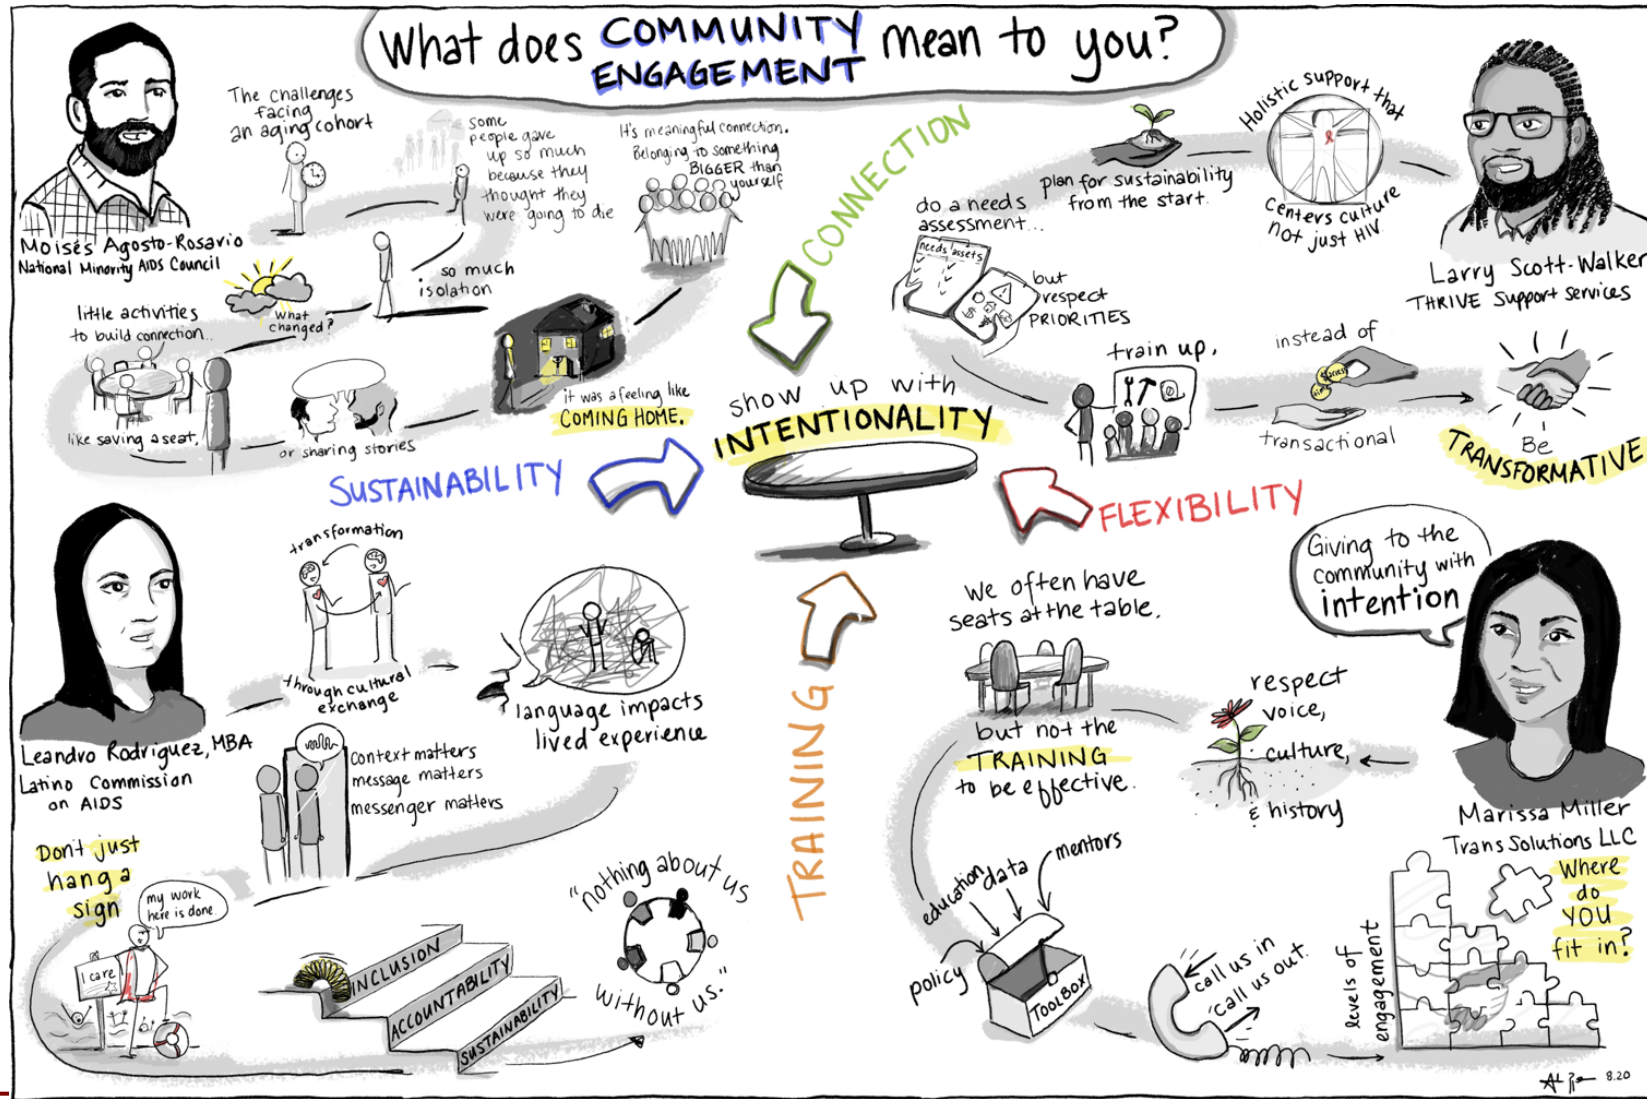 What does COMMUNITY
ENGAGEMENT mean to you?
The challenges
facing
an aging cohort
some
people gave
up so much
because they
thought they
were going to die
It's meaningful connection.
Belonging to something
BIGGER than
yourself
Moisés Agosto-Rosario
National Minority AIDS Council
so much
isolation
What
changed?
little activities
to build connection..
like saving a seat,
or sharing stories
it was a feeling like
COMING HOME.
CONNECTION
show up with
INTENTIONALITY
SUSTAINABILITY
FLEXIBILITY
TRAINING
Holistic support that
centers culture
not just HIV
Larry Scott-Walker
THRIVE Support Services
plan for sustainability
from the start.
do a needs
assessment...
needs assets
but
respect
PRIORITIES
train up.
instead of
transactional
Be
TRANSFORMATIVE
Leandro Rodriguez, MBA
Latino Commission
on AIDS
transformation
through cultural
exchange
language impacts
lived experience
Context matters
message matters
messenger matters
Don't just
hang a
sign
my work
here is done.
I care
INCLUSION
ACCOUNTABILITY
SUSTAINABILITY
"nothing about us
without us."
Giving to the
community with
intention
Marissa Miller
Trans Solutions LLC
respect
voice,
culture,
& history
We often have
seats at the table.
but not the
TRAINING
to be effective.
policy
education
data
mentors
TOOLBOX
call us in
"call us out.
levels of
engagement
Where
do
YOU
fit in?
8.20